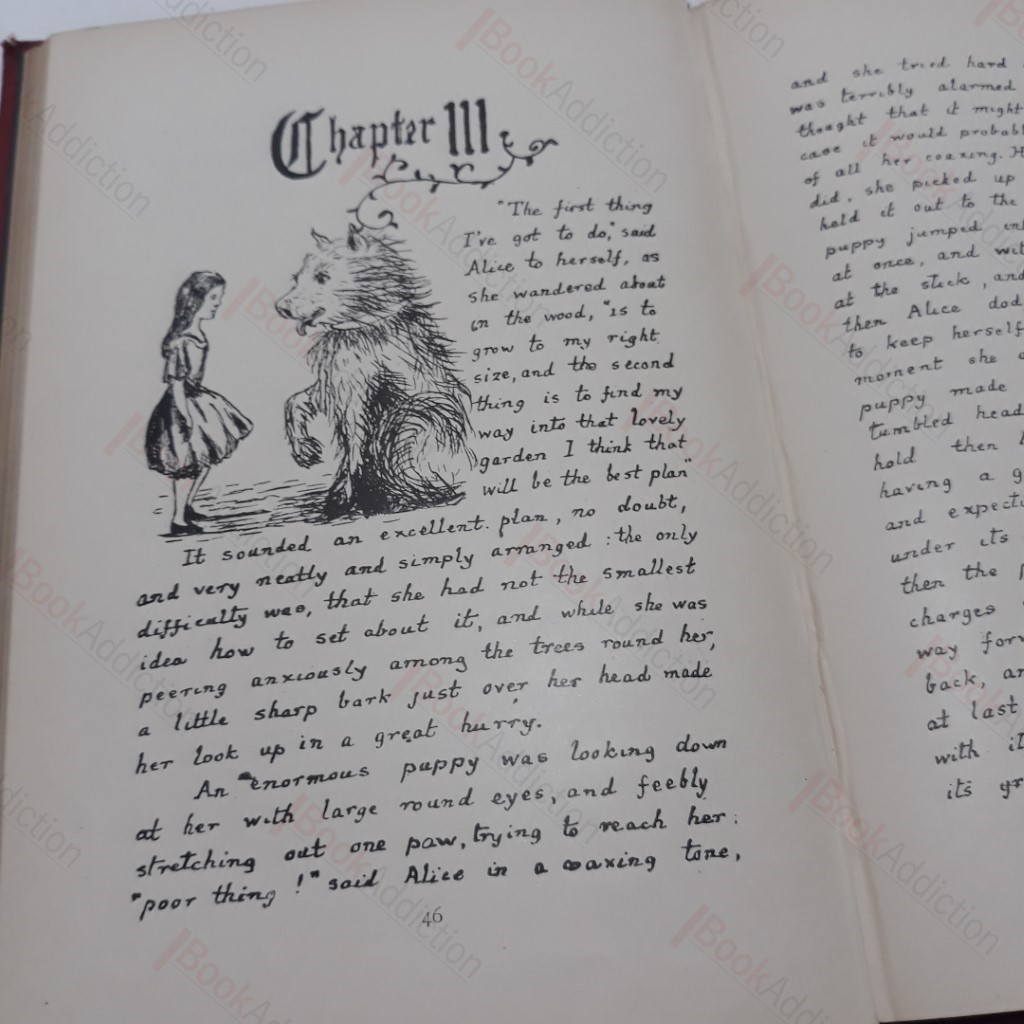 Chapter III
"The first thing
I've got to do," said
Alice to herself, as
she wandered about
in the wood, "is to
grow to my right
size, and the second
thing is to find my
way into that lovely
garden I think that
will be the best plan"
It sounded an excellent plan, no doubt,
and very neatly and simply arranged : the only
difficulty was, that she had not the smallest
idea how to set about it, and while she was
peering anxiously among the trees round her,
a little sharp bark just over her head made
her look up in a great hurry.
An enormous puppy was looking down
at her with large round eyes, and feebly
stretching out one paw, trying to reach her:
"poor thing!" said Alice in a coaxing tone,
46
and she tried hard
was terribly alarmed
thought that it might
case it would probabl
of all her coaxing. H
did, she picked up
held it out to the
puppy jumped in
at once, and wit
at the stick, and
then Alice dod
to keep herself
moment she
puppy made
tumbled head
hold then
having a g
and expecti
under its
then the
charges
way forw
back, an
at last
with it
its gr
BookAddiction